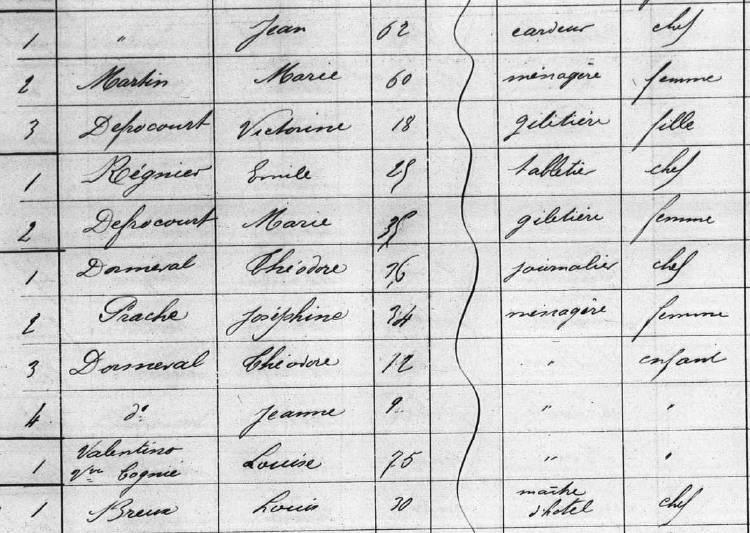 1 " Jean 62 cardeur chef
2 Martin Marie 60 ménagère femme
3 Defrocourt Victorine 18 giletière fille
1 Régnier Emile 25 tabletier chef
2 Defrocourt Marie giletière femme
1 Dormeval Théodore 36 journalier chef
2 Prache Joséphine 34 ménagère femme
3 Dormeval Théodore 12 " enfant
4 do Jeanne 9 " "
1 Valentino Louise 75 " "
Vve Cognie
1 Breux Louis 30 maître chef
d'hotel